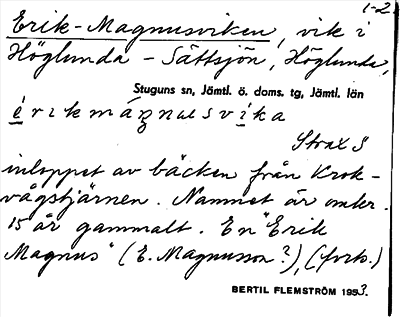 1-2
Erik-Magnusviken, vik i
Höglunda - Sättsjön, Höglunda,
Stuguns sn, Jämtl. ö. doms. tg, Jämtl. län
é r ı k m á ŋ n u s v í k a
Strax S
inloppet av bäcken från Krok-
vågstjärnen. Namnet är omkr.
15 år gammalt. En "Erik
Magnus" (E. Magnusson?), (fork.)
BERTIL FLEMSTRÖM 1953.